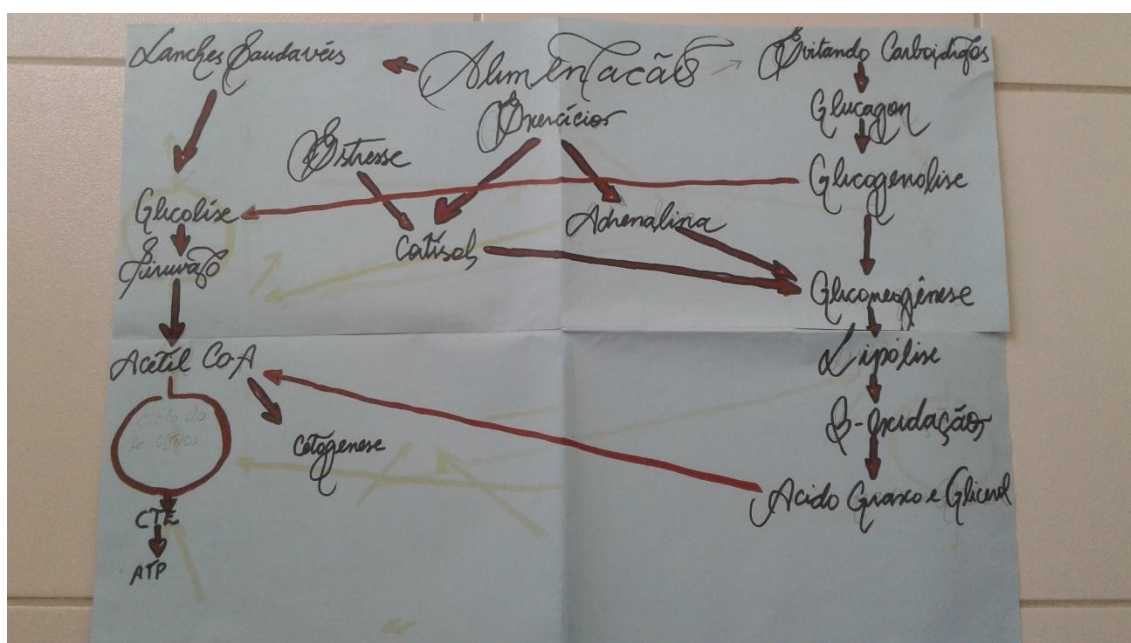 Lanches Saudavéis
Alimentação
Evitando Carboidratos
Exercícios
Glucagon
Estresse
Glicogenolise
Glicolise
Adrenalina
Cortisol
Piruvato
Gliconeogênese
Acetil Co-A
Lipólise
Ciclo do
Ac. Cítrico
Cetogenese
β-oxidação
Acido Graxo e Glicerol
CTE
ATP